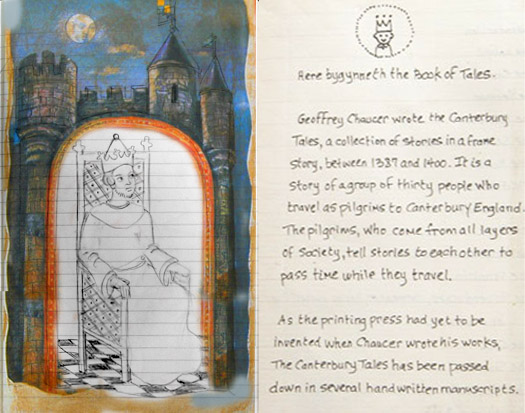 Here bygynneth the Book of Tales.
Geoffrey Chaucer wrote the Canterbury
Tales, a collection of stories in a frame
story, between 1387 and 1400. It is a
story of a group of thirty people who
travel as pilgrims to Canterbury England.
The pilgrims, who come from all layers
of society, tell stories to each other to
pass time while they travel.
As the printing press had yet to be
invented when Chaucer wrote his works,
The Canterbury Tales has been passed
down in several handwritten manuscripts.